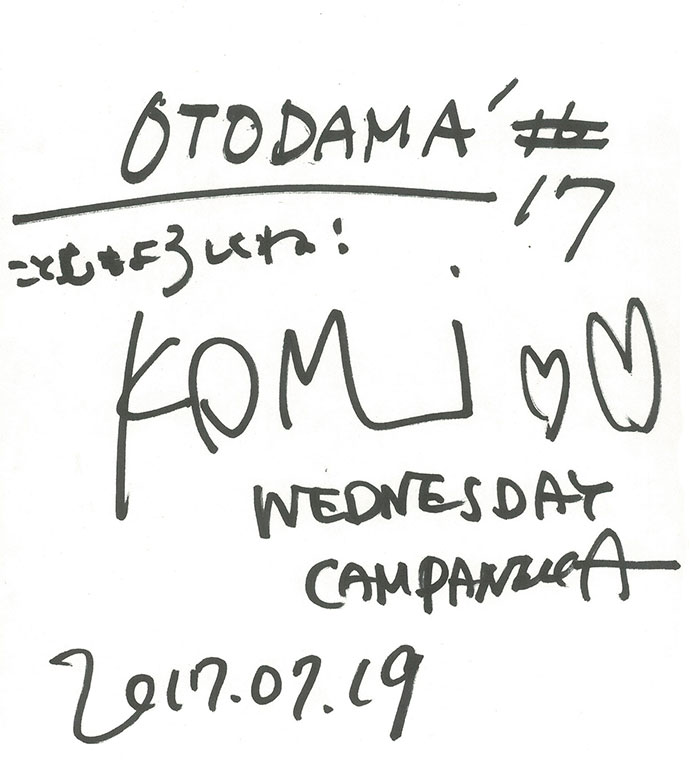 OTODAMA '17
ことしもよろしくね!
KOMi ♡♡
WEDNESDAY
CAMPANELLA
2017.07.19